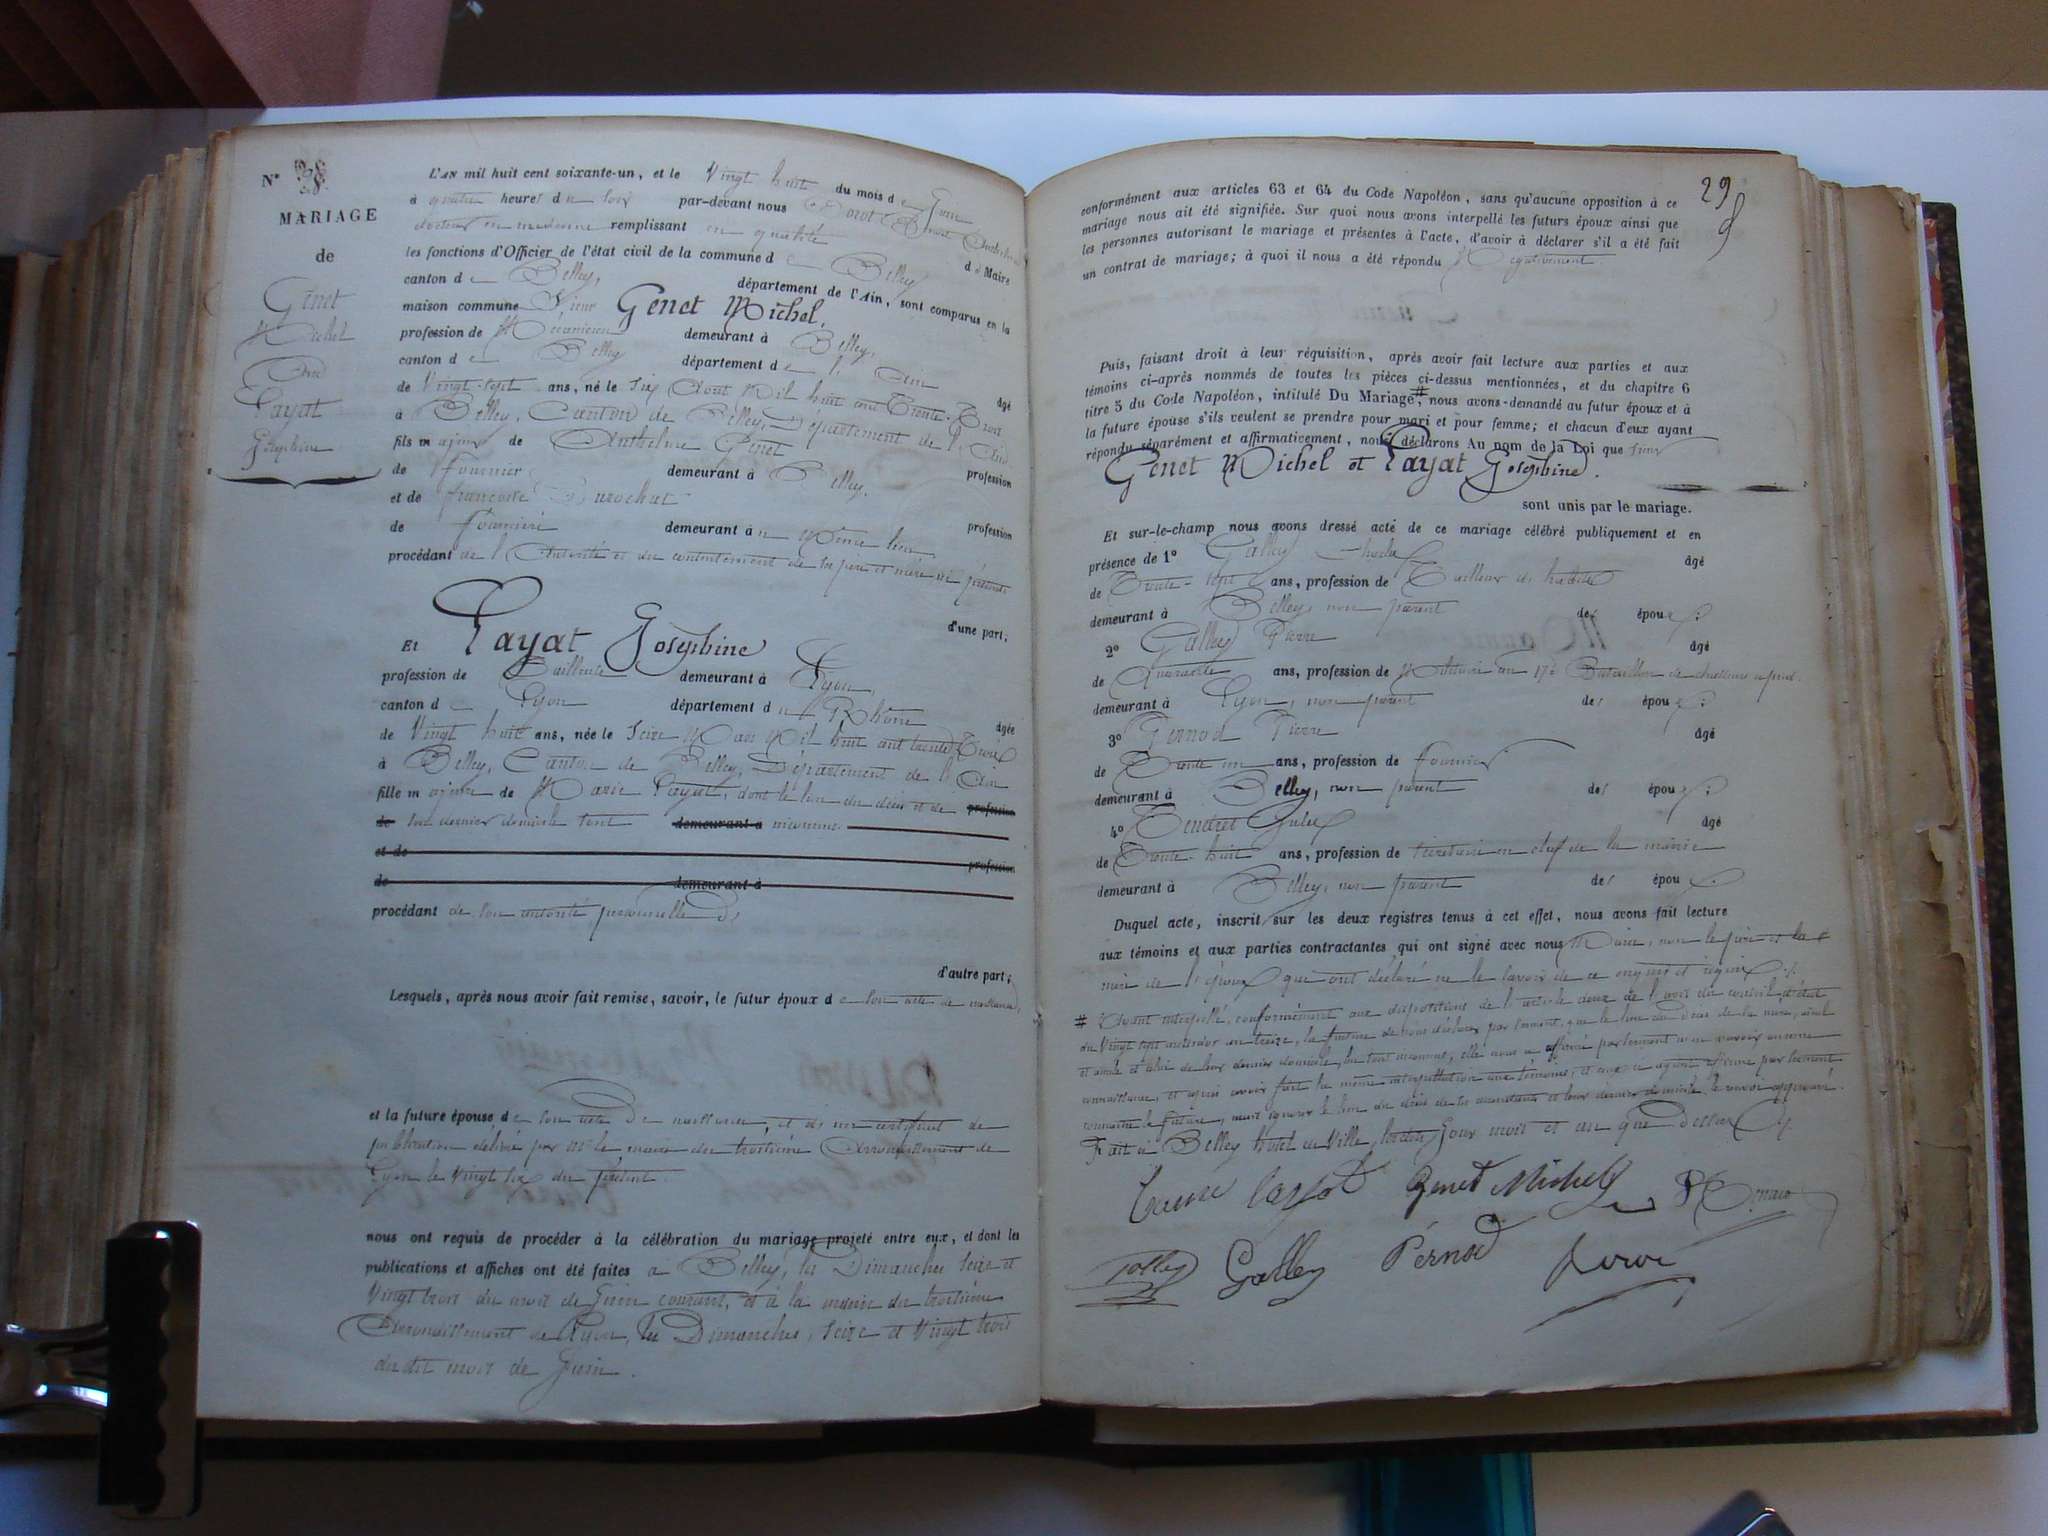 N° 28
MARIAGE
de
Genet
Michel
Avec
Payat
Joséphine
L'AN mil huit cent soixante-un, et le Vingt huit du mois de Juin
à quatre heures du soir par-devant nous
docteur en médecine remplissant en qualité de Maire
les fonctions d'Officier de l'état civil de la commune de Belley
canton de Belley, département de l'Ain, sont comparus en la
maison commune Sieur Genet Michel,
profession de demeurant à Belley,
canton de Belley département de l'Ain âgé
de Vingt-sept ans, né le six Aout Mil huit cent Trente-Trois
à Belley, Canton de Belley, Département de l'Ain
fils majeur de Anthelme Genet profession
de fournier demeurant à Belley.
et de françoise Burochat profession
de fournière demeurant à u Même lieu
procédant de l'Autorité et du contentement de ses père et mère ici présents
d'une part;
Et Payat Joséphine
profession de Tailleuse demeurant à Lyon,
canton de Lyon département du Rhône âgée
de Vingt huit ans, née le Seize Mars Mil huit cent trente Trois
à Belley, Canton de Belley, Département de l'Ain
fille majeure de Marie Payat, dont le lieu du décès et de profession
de son dernier domicile sont demeurant à inconnus.
et de profession
de demeurant à
procédant de son autorité personnelle
d'autre part;
Lesquels, après nous avoir fait remise, savoir, le futur époux de son acte de naissance,
et la future épouse de son acte de naissance, et d'un certificat de
publication délivré par Mr le maire du troisième Arrondissement de
Lyon le Vingt six du présent
nous ont requis de procéder à la célébration du mariage projeté entre eux, et dont les
publications et affiches ont été faites à Belley, les Dimanches Seize et
Vingt trois du mois de Juin courant, et à la mairie du troisième
Arrondissement de Lyon, les Dimanches, Seize et Vingt trois
du dit mois de Juin.
29
conformément aux articles 63 et 64 du Code Napoléon, sans qu'aucune opposition à ce
mariage nous ait été signifiée. Sur quoi nous avons interpellé les futurs époux ainsi que
les personnes autorisant le mariage et présentes à l'acte, d'avoir à déclarer s'il a été fait
un contrat de mariage; à quoi il nous a été répondu Négativement.
Puis, faisant droit à leur réquisition, après avoir fait lecture aux parties et aux
témoins ci-après nommés de toutes les pièces ci-dessus mentionnées, et du chapitre 6
titre 5 du Code Napoléon, intitulé Du Mariage,# nous avons demandé au futur époux et à
la future épouse s'ils veulent se prendre pour mari et pour femme; et chacun d'eux ayant
répondu séparément et affirmativement, nous déclarons Au nom de la Loi que sieur
Genet Michel et Payat Joséphine.
sont unis par le mariage.
Et sur-le-champ nous avons dressé acte de ce mariage célébré publiquement et en
présence de 1° Galley âgé
de Trente-sept ans, profession de Tailleur d'habits
demeurant à Belley, non parent des époux;
2° Galley Pierre âgé
de Quarante ans, profession de Militaire au 17e Bataillon de chasseurs à pied.
demeurant à Lyon, non parent des époux;
3° Pernod Pierre âgé
de Trente un ans, profession de fournier
demeurant à Belley, non parent des époux;
4° Tendret Jules âgé
de Trente-huit ans, profession de secrétaire en chef de la mairie
demeurant à Belley, non parent des époux.
Duquel acte, inscrit sur les deux registres tenus à cet effet, nous avons fait lecture
aux témoins et aux parties contractantes qui ont signé avec nous Maire, non le père et la
mère de l'époux que ont déclaré ne le savoir de ce enquis et requis
# Ayant interpellé, conformément aux dispositions de l'article deux de l'avis du conseil d'état
du Vingt sept messidor an treize, la future de nous déclarer par serment, que le lieu du décès de la mère, aïeul
et aïeule et celui de leur dernier domicile, lui sont inconnus, elle nous a affirmé par serment n'en avoir aucune
connaissance, et après avoir fait la même interpellation aux témoins, et ceux-ci ayant affirmé par serment
connaître la future, mais ignorer le lieu du décès de ses ascendants et leur dernier domicile le renvoi approuvé.
Fait à Belley hôtel de Ville, les dits Jour mois et an que Dessus
Genet Michel
Galley
Galley
Pernod